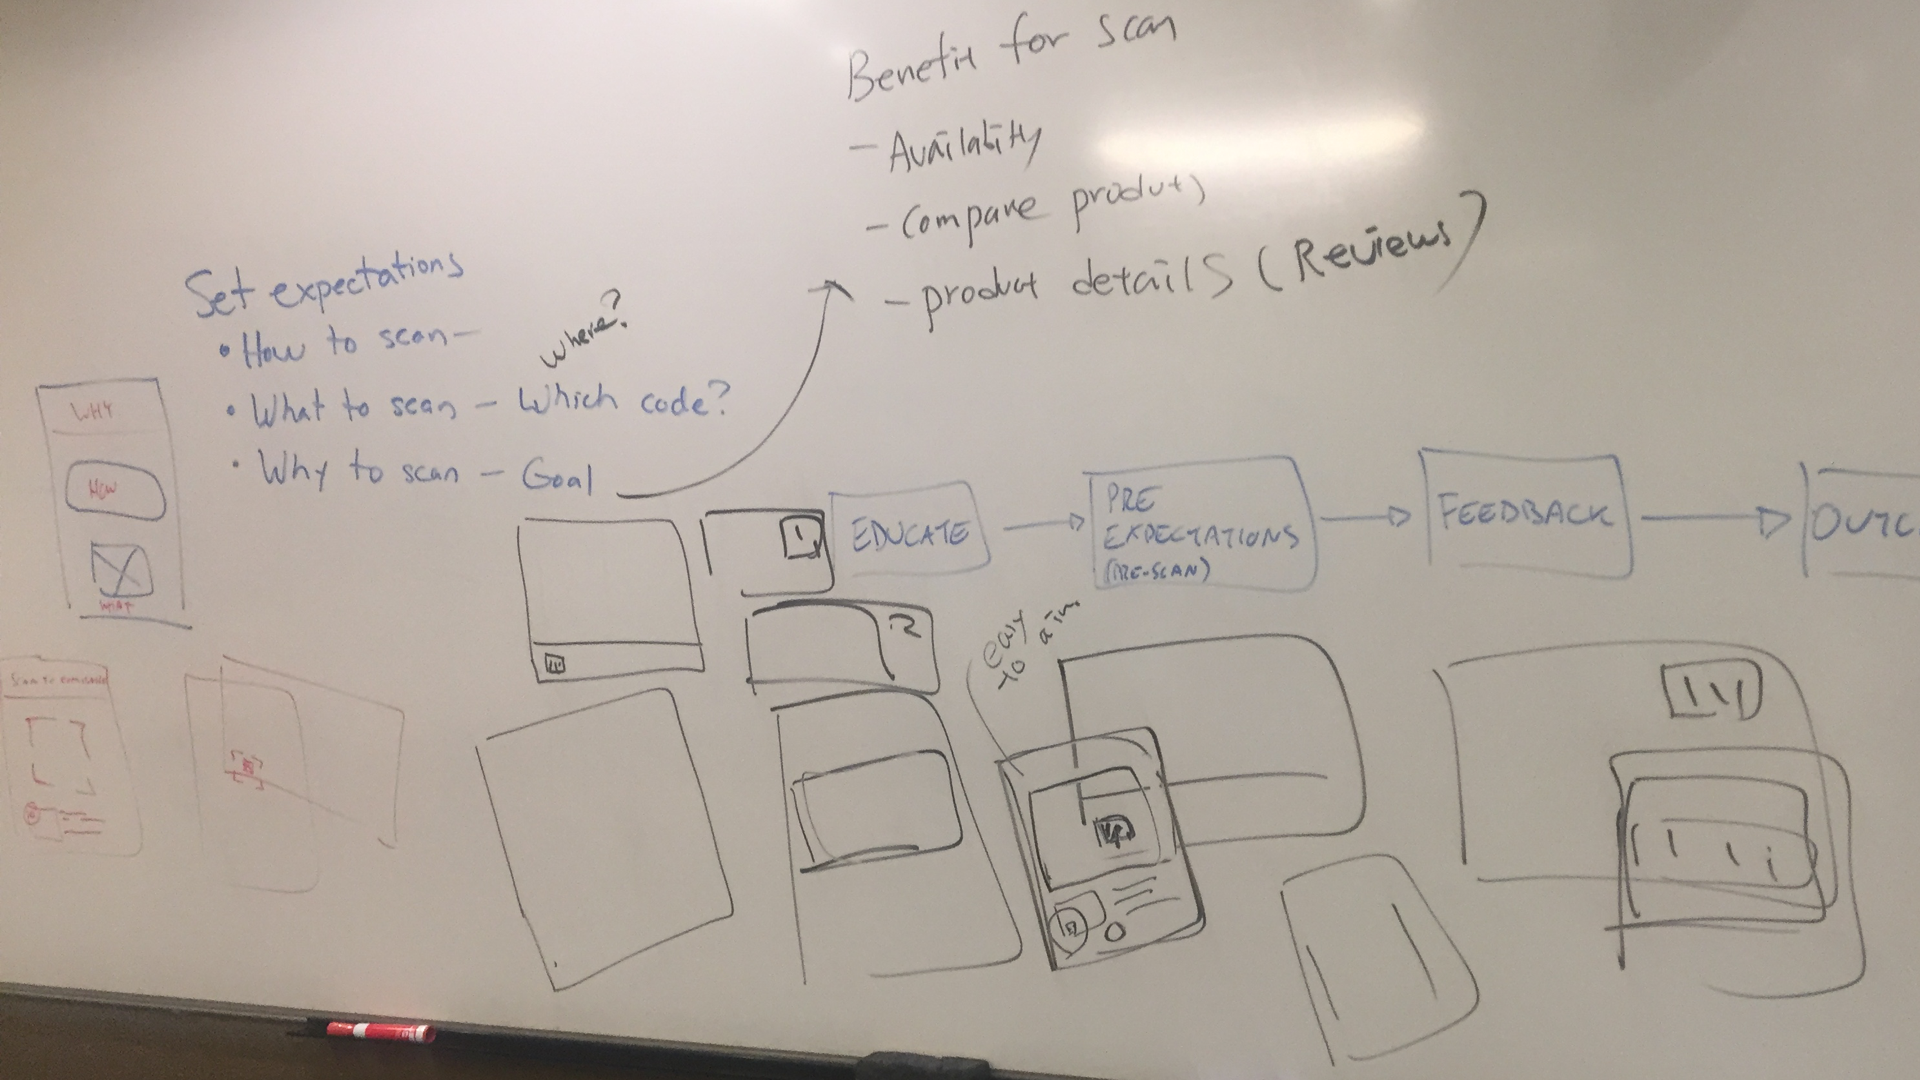 Benefit for scan
- Availability
- Compare products
- product details (Reviews)
Set expectations
• How to scan -
where?
• What to scan - Which code?
• Why to scan - Goal
WHY
HOW
WHAT
EDUCATE
PRE
EXPECTATIONS
(PRE-SCAN)
FEEDBACK
OUTC
easy
to aim
Scan to